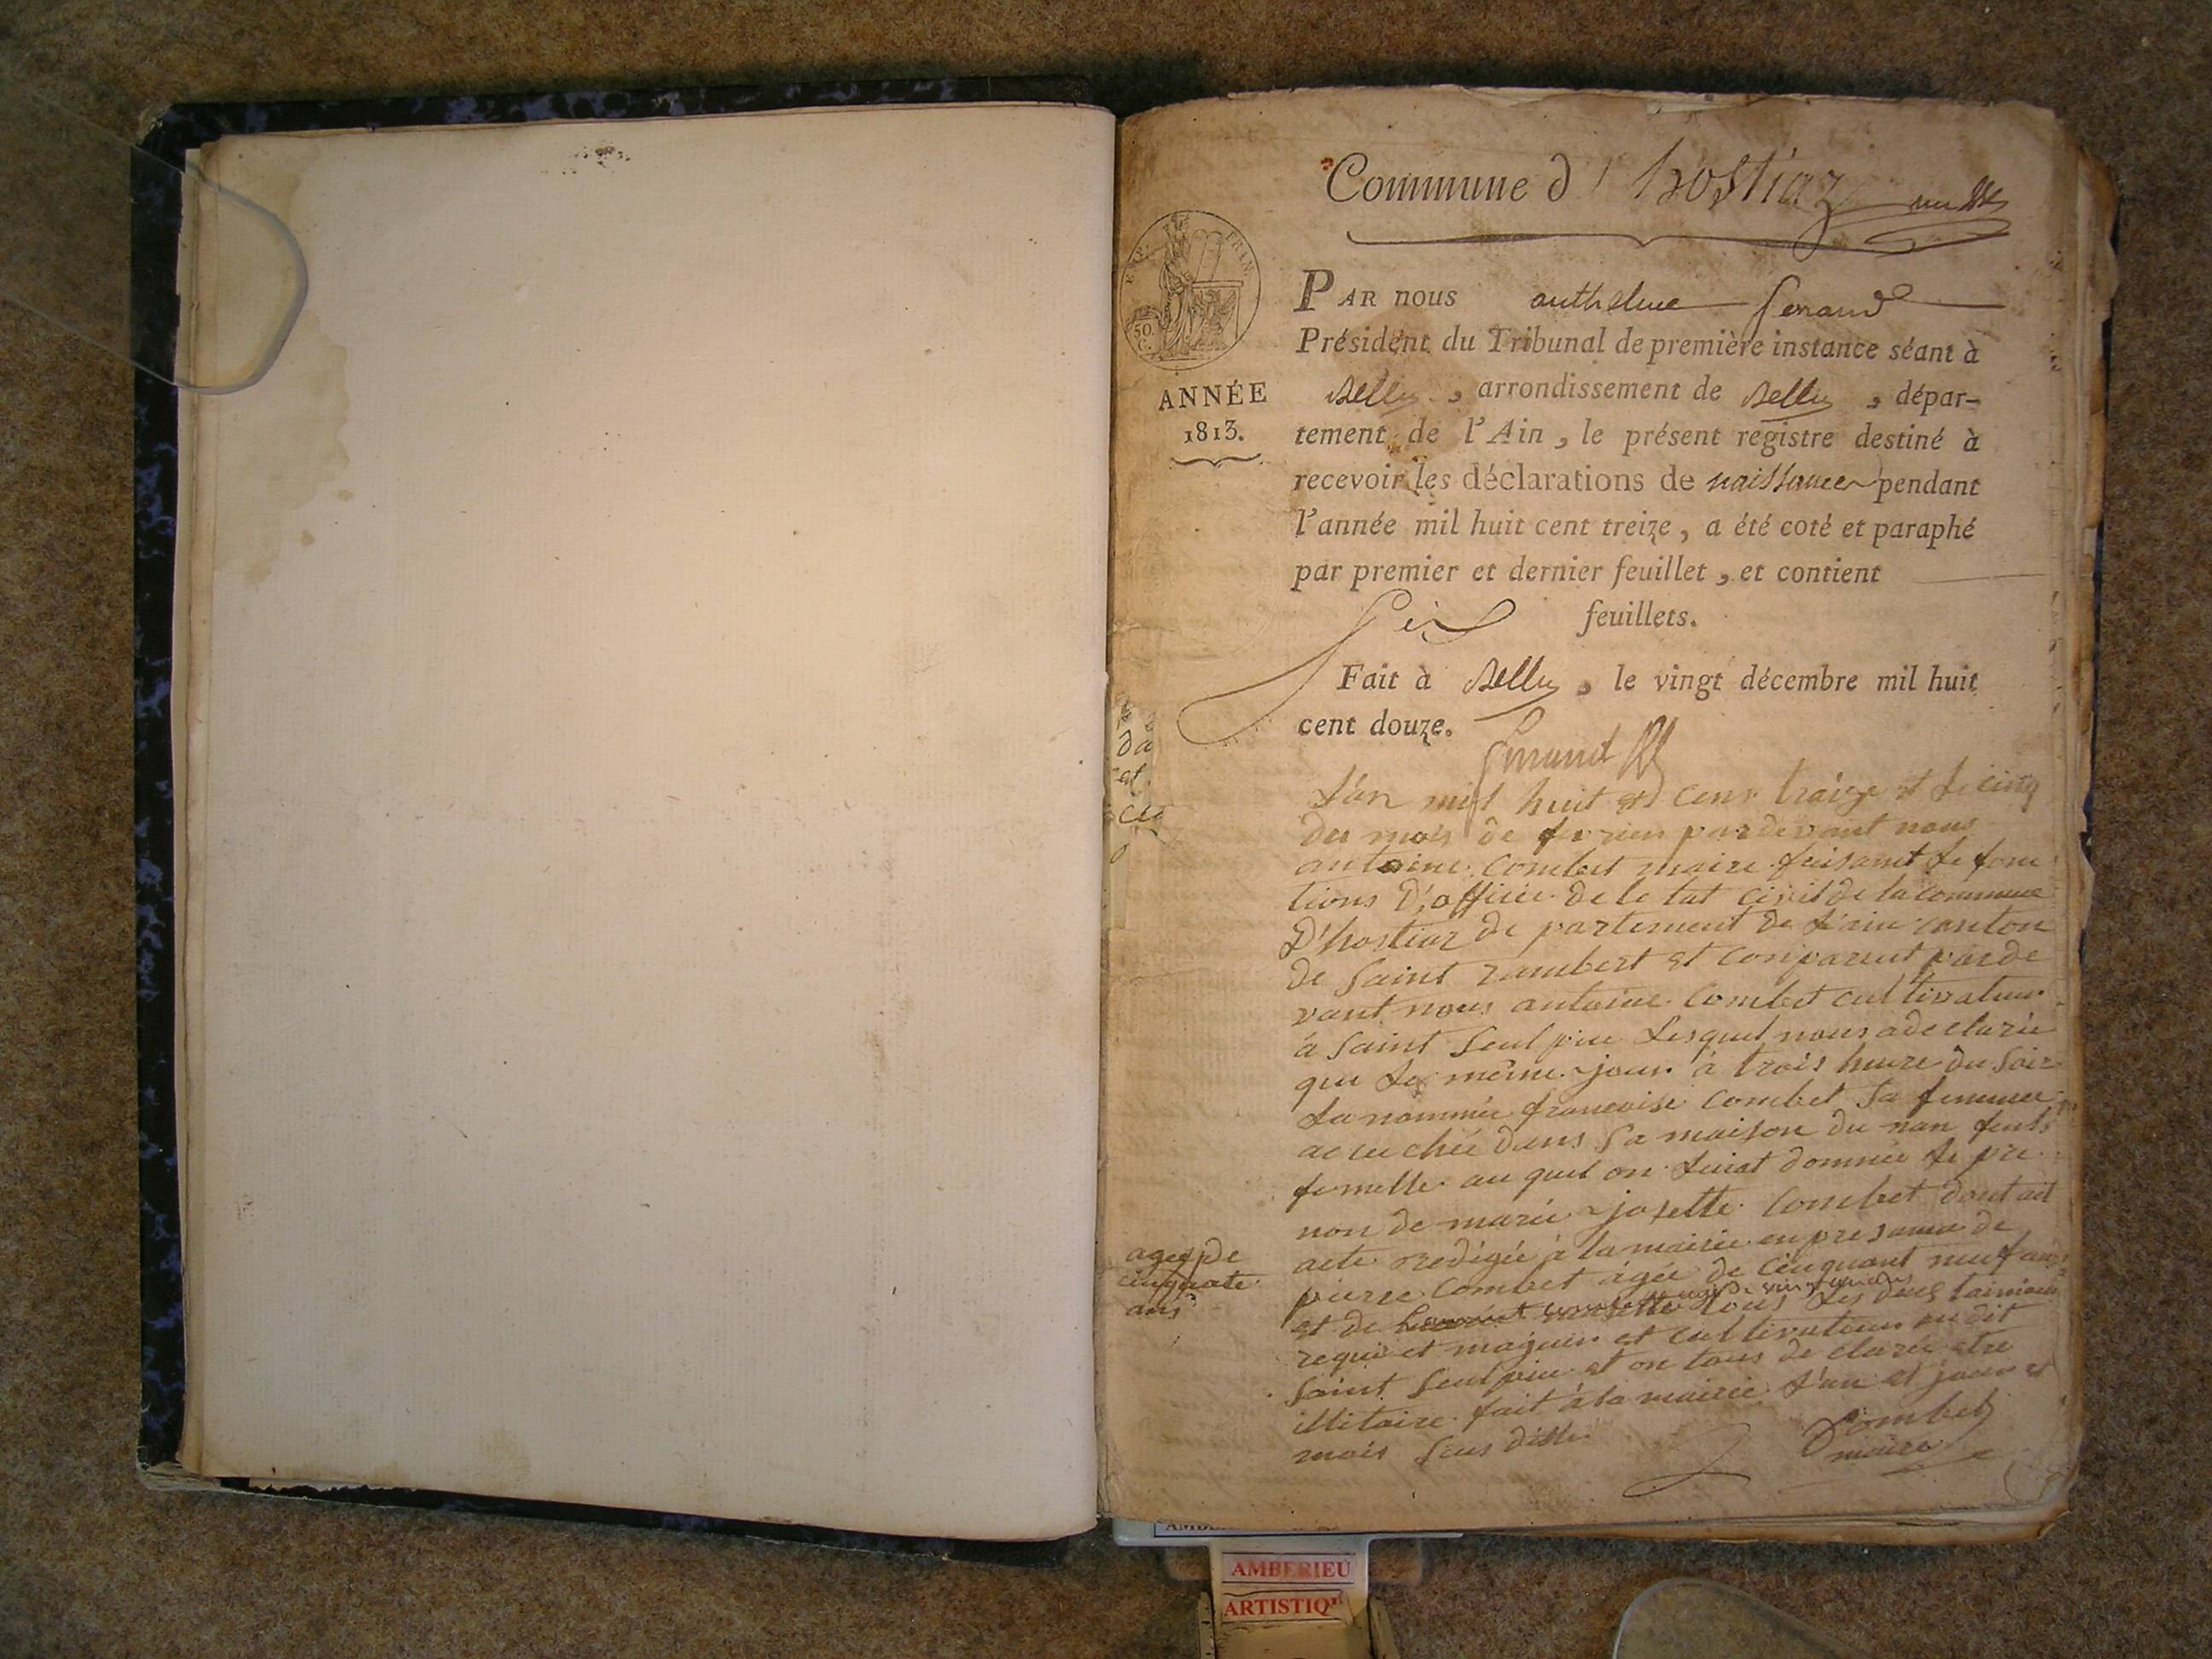 Commune d'hostiaz
EMP. FRAN.
50.
C.
PAR nous anthelme
Président du Tribunal de première instance séant à
Belley, arrondissement de Belley, dépar-
tement de l'Ain, le présent registre destiné à
recevoir les déclarations de naissances pendant
l'année mil huit cent treize, a été coté et paraphé
par premier et dernier feuillet, et contient
six feuillets.
Fait à Belley, le vingt décembre mil huit
cent douze.
ANNÉE
1813.
da
et
L'an mil huit et cent traize et le cinq
du mois de fevrier pardevant nous
antoine Combet maire faisant le fonc
tions D'officier de le tat civil de la commune
D'hostiaz de partement de l'ain canton
de Saint rambert et conparut parde
vant nous antoine Combet cultivateur
à Saint Seulpice lesquel nous a declarée
que le même jour à trois heure du Soir
La nommée francoise Combet Sa femme
accuchée dans Sa maison du nan fents
femelle au quel on luiat donnée le pre
non de marie josette Combet dont act
acte redigée à la mairie en presance de
pierre Combet âgée de cinquant neuf ans
et de tous les deus taimoin
requi et majeur et cultivateur au dit
Saint Seulpice et on tous de clarée etre
illitaire fait à la mairie l'an et jour et
mois Sus dille
Combet
maire
agee de
cinquate
ans
AMBERIEU
ARTISTIQ